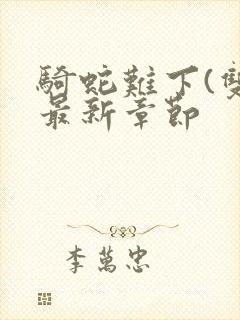 騎蛇難下(雙
最新章節
李萬忠